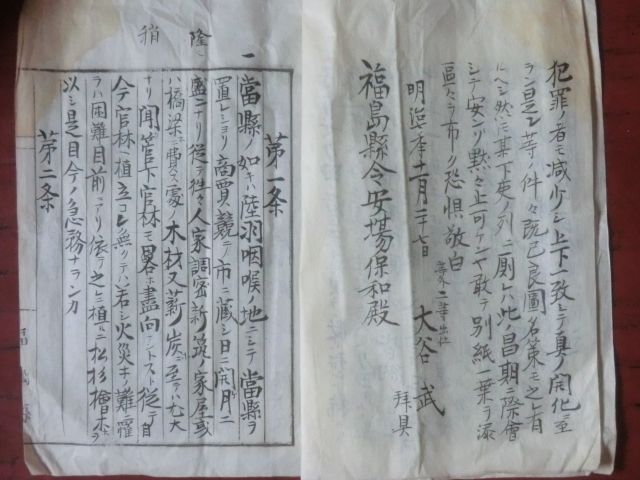 犯罪ノ者モ減少シ上下一致シテ真ノ開化ニ至
ラン是レ等ノ件々既已良圖名策モ之レ有
ルヘシ然ルニ某下吏ノ列ニ厠レハ此ノ昌期ニ際會
シテ安ンソ黙々止可ケンヤ敢テ別紙一葉ヲ添
區々ヲ布ク恐惶敬白
明治 年十一月二十七日
第二等出仕
大谷武
拜具
福島縣令安場保和殿
隆
稍
第一条
一當縣ノ如キハ陸羽咽喉ノ地ニシテ當縣ヲ
置レショリ商賈競テ市ニ蔵シ日ニ開ケ月ニ
盛ニナリ從テ往々人家調密新築ノ家屋或
ハ橋梁ニ費ス處ノ木材又薪炭ニ至テハ尤大
ナリ聞管下官林モ畧ホ盡向アントスト従テ自
今官林ノ植立コレ無クテハ若シ火災等ノ難罹
ラハ困難目前ニアリ依テ之レニ植ルニ松杉檜等ヲ
以シ是目今ノ急務ナランカ
第二条